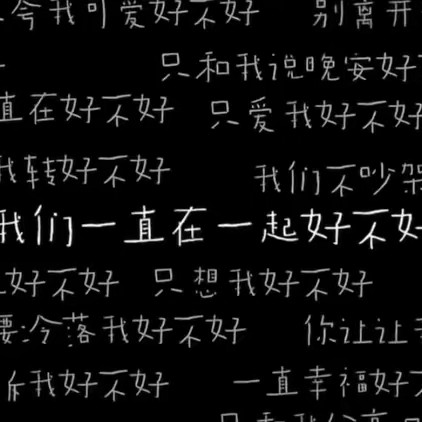 夸我可爱好不好 别离开
只和我说晚安好不
直在好不好 只爱我好不好
我转好不好 我们不吵架
我们一直在一起好不好
好不好 只想我好不好
要冷落我好不好 你让让
诉我好不好 一直幸福好不